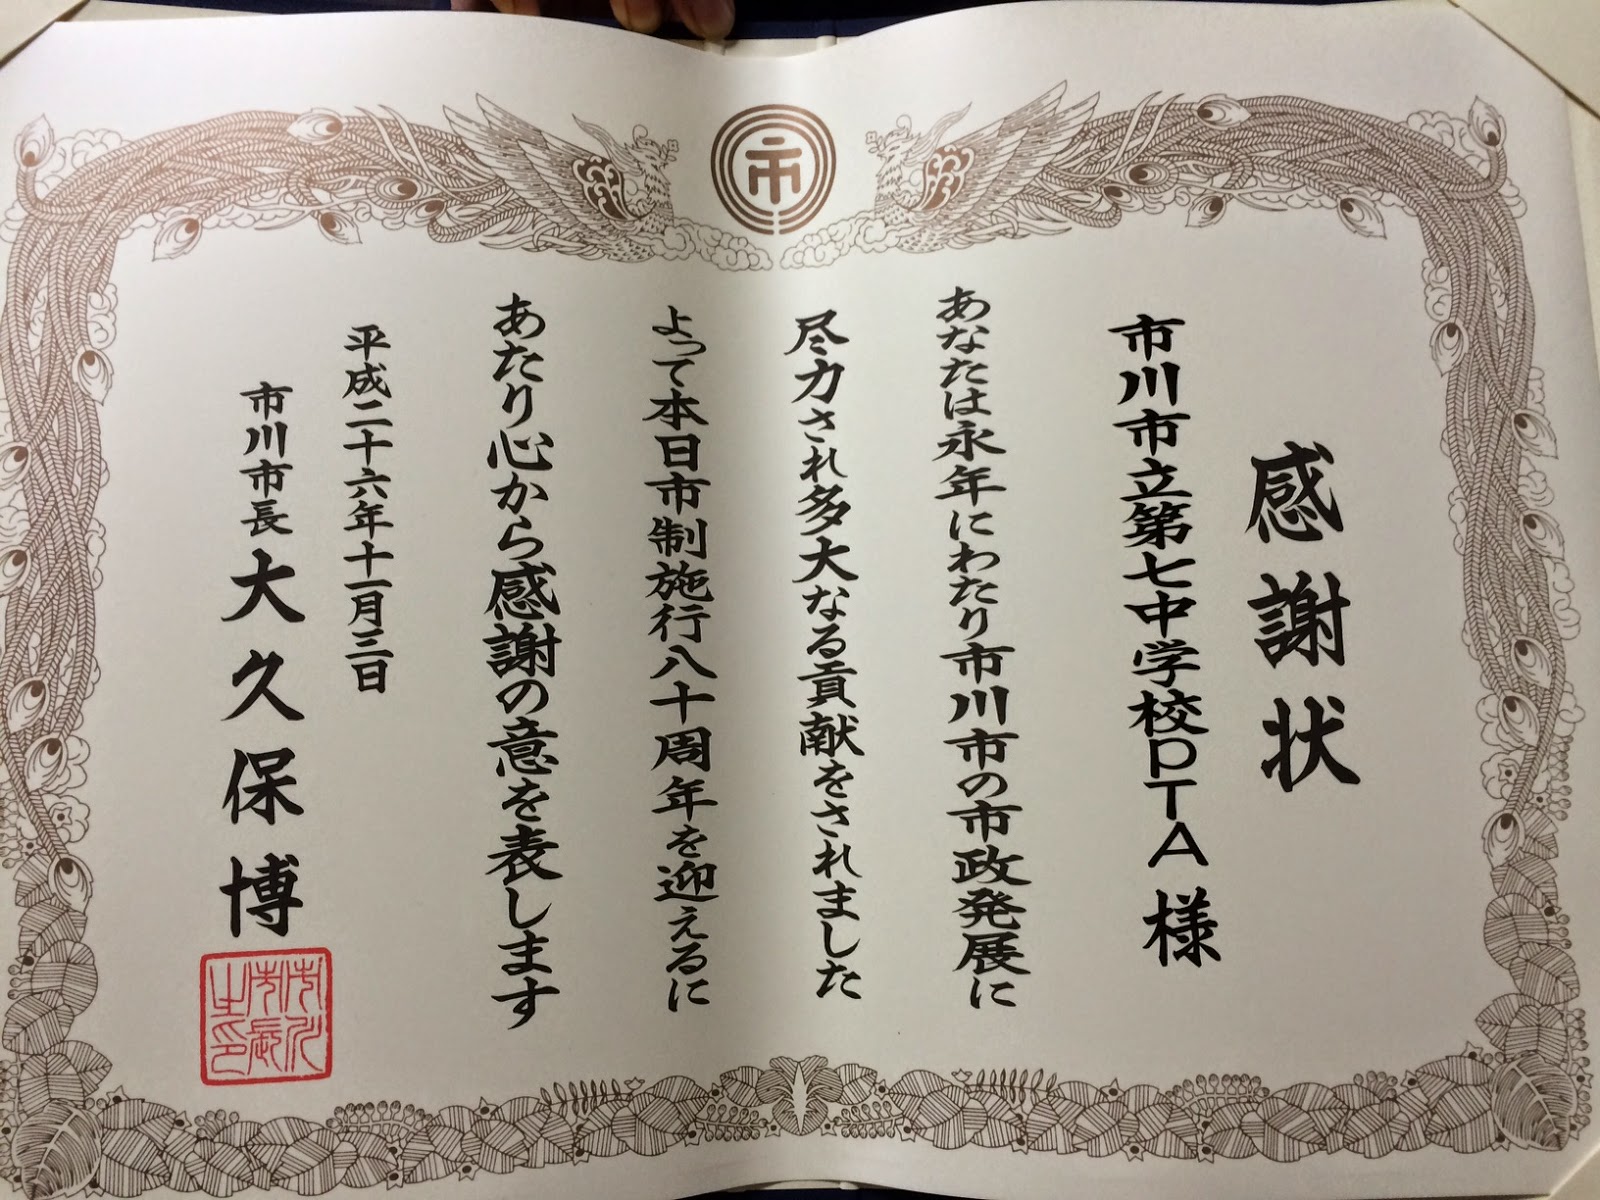 感謝状
市川市立第七中学校PTA様
あなたは永年にわたり市川市の市政発展に
尽力され多大なる貢献をされました
よって本日市制施行八十周年を迎えるに
あたり心から感謝の意を表します
平成二十六年十一月三日
市川市長 大久保博
市川
市長
之印
市